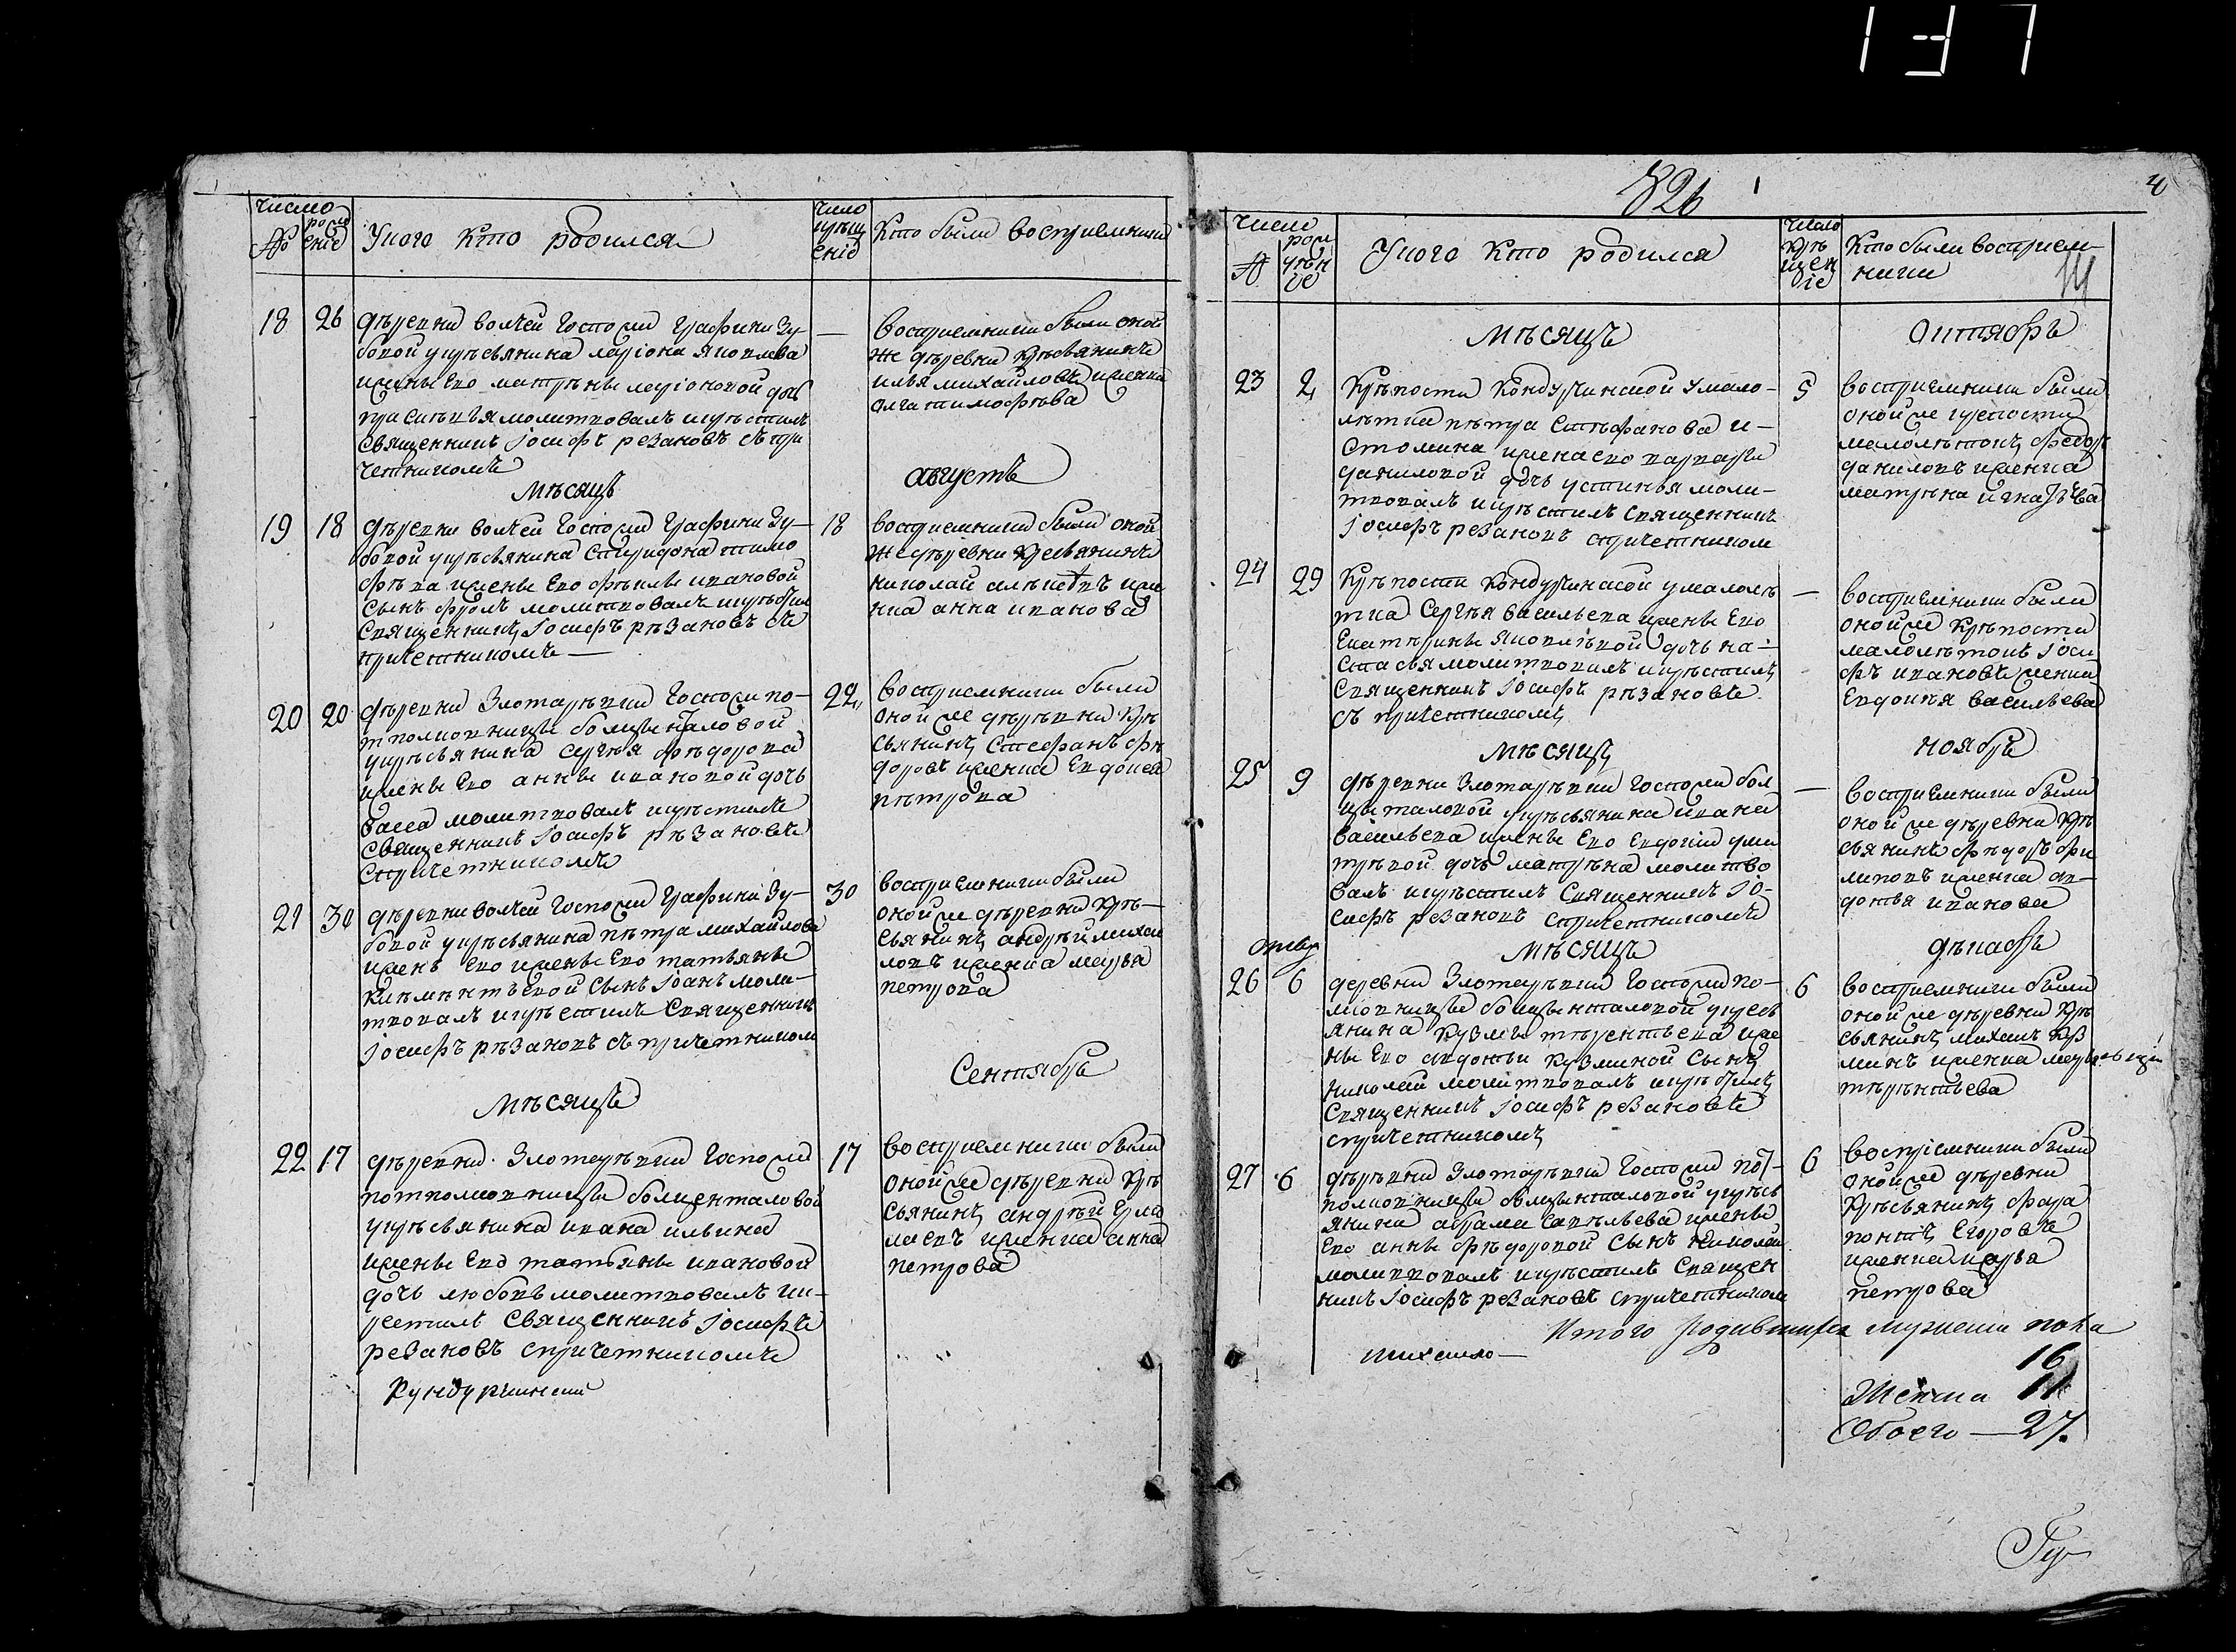 137
число
№ рожденiе
У кого кто родился
число крещенiе
Кто были восприемники
18 26 деревни волчей Госпожи Графини Зу-
бовой укрѣсьянина ларiона яковлева
жены Ево матрены ларiоновой дочь
молитвовалъ икрѣстилъ
Священникъ Iосифъ резановъ съ при
четникомъ
— Восприемники были оной
же деревни крѣсьянинъ
илья михайловъ иженка
олга тимофѣва
Мѣсяцъ августъ
19 18 дѣревни волчей Госпожи Графини Зу-
бовой укрѣсьянина Спиридона тимо
фѣва жены Ево фѣклы ивановой
Сынъ фролъ молитвовалъ икрѣстил
Священникъ Iосифъ рѣзановъ съ
причетникомъ —
18 восприемники были оной
же дѣревни кресьянинъ
николай алѣксѣвъ иже
нка анна иванова
20 20 дѣревни Золотарѣвки Госпожи по-
тполковницы
укрѣсьянина сергѣя фѣдорова
жены Ево анны ивановой дочь
васса молитвовалъ икрѣстилъ
Священникъ Iосифъ рѣзановъ
спричетникомъ
22 восприемники были
оной же дѣрѣвни крѣ
сьянинъ Стефанъ фѣ
доровъ иженка Евдокея
пѣтрова
21 30 дѣревни волчей Госпожи Графини Зу-
бовой укрѣсьянина пѣтра михайлова
иженъ Ево ижены Ево татьяны
климѣнтъевой Сынъ Iоанъ моли-
твовалъ икрѣстилъ Священникъ
Iосифъ рѣзановъ съ причетником
30 восприемники были
оной же дѣревни крѣ-
сьянинъ андрѣй михаи
ловъ иженка марья
петрова
Мѣсяцъ Сентябрь
22 17 дѣревни Золотарѣвки Госпожи
потполковницы болценталовой
укрѣсьянина ивана ильина
ижены Ево татьяны ивановой
дочь любовь молитвовалъ ик-
рестилъ Священникъ Iосифъ
резановъ спричетникомъ
17 восприемники были
оной же дѣревни крѣ
сьянинъ андрѣй Ерма
лаевъ иженка анна
петрова
Кундурчинской
826
число
№
У кого кто родился
число крѣщенiе
Кто были восприем-
ники
Мѣсяцъ октябрь
23 2 Крѣпости Кондурчинской умало-
лѣтка пѣтра Стефанова и-
стомина иженаево варвары
даниловой дочь устинья моли-
твовалъ икрѣстилъ священникъ
Iосифъ резановъ спричетником
5 восприемники были
оной же крепости
малолѣтокъ федоръ
даниловъ иженка
матрѣна игнатѣва
24 29 Крѣпости Кондурчинской умалолѣ
тка Сергѣя васильева ижены Ево
Екатѣрины яковлѣвой дочь на-
стасья молитвовалъ икрѣстилъ
Священникъ Iосифъ рѣзановъ
съ причетникомъ
— восприемники были
оной же крѣпости
малолѣтокъ Iоси
фъ ивановъ иженка
Евдокѣя васильева
Мѣсяцъ ноябрь
25 9 дѣревни Золотарѣвки Госпожи бол
центаловой укрѣсьянина ивана
васильева ижены Ево Евдокiи дми
трѣвой дочь матрѣна молитво
валъ икрѣстилъ Священникъ Iо-
сифъ резановъ спричетникомъ
— восприемники были
оной же дѣревни крѣ
сьянинъ фѣдоръ фи
липовъ иженка ав-
дотья иванова
Мѣсяцъ дѣкабрь
26 6 деревни Золотарѣвки Госпожи по-
лковницы болценталовой укресь
янина кузмы тѣрентьева иже
ны Ево авдотьи кузминой Сынъ
николай молитвовалъ икрѣстилъ
Священникъ Iосифъ резановъ
спричетникомъ
6 восприемники были
оной же дѣревни крѣ
сьянинъ михаилъ куз
минъ иженка марья
тѣрѣнтьева
27 6 дѣрѣвни Золотарѣвки Госпожи пот-
полковницы болценталовой укрѣсь
янина абрама савѣльева ижены
Ево анны фѣдоровой Сынъ николай
молитвовалъ икрѣстилъ Священ
никъ Iосифъ резановъ спричетником
6 воспрiемники были
оной же дѣревни
крѣсьянинъ фара
понтъ Егоровъ
иженка марья
петрова
Итого родившихся мужеска пола
16
Женска 11
Обоего — 27.